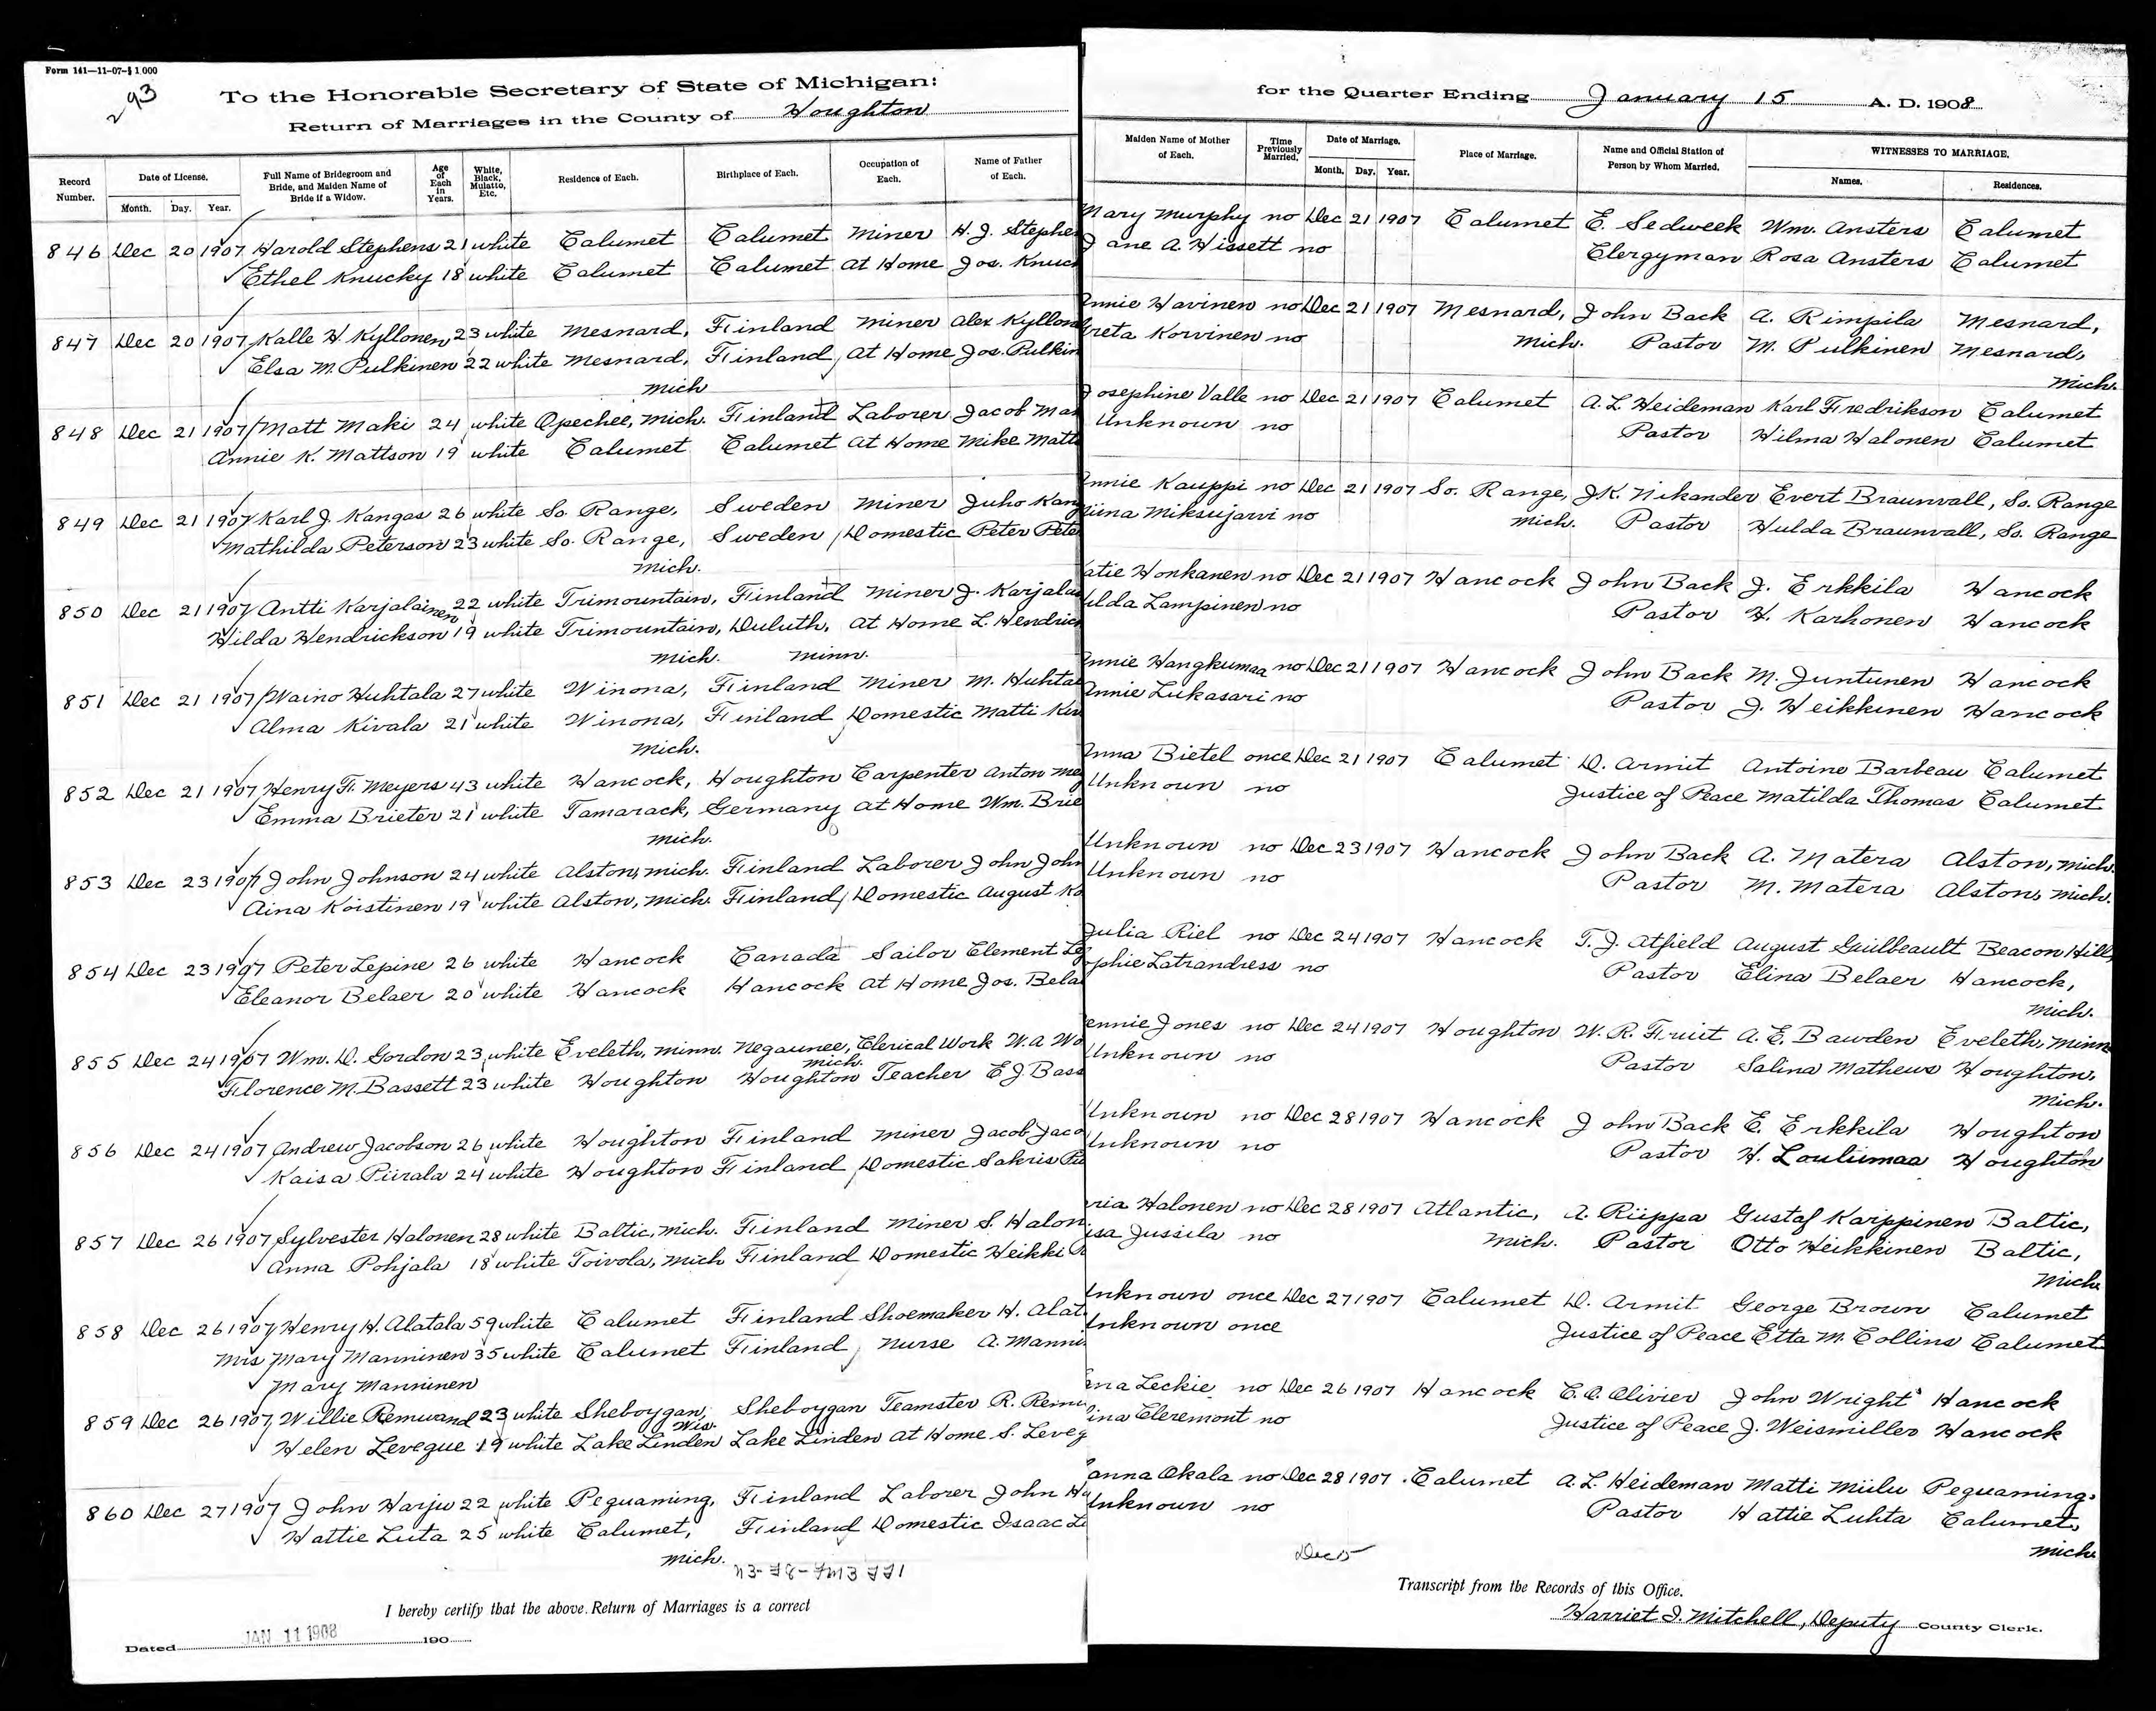 Form 141—11-07-1 000
293
To the Honorable Secretary of State of Michigan:
Return of Marriages in the County of Houghton
for the Quarter Ending January 15 A. D. 1908
Record Number. Date of License. Month. Day. Year. Full Name of Bridegroom and Bride, and Maiden Name of Bride if a Widow. Age of Each in Years. White, Black, Mulatto, Etc. Residence of Each. Birthplace of Each. Occupation of Each. Name of Father of Each. Maiden Name of Mother of Each. Time Previously Married. Date of Marriage. Month. Day. Year. Place of Marriage. Name and Official Station of Person by Whom Married. WITNESSES TO MARRIAGE. Names. Residences.
846 Dec 20 1907 Harold Stephens 21 white Calumet Calumet Miner H. J. Stephe Mary Murphy no Dec 21 1907 Calumet E. Sedweek Wm. Ansters Calumet
Ethel Knucky 18 white Calumet Calumet At Home Jos. Knuc Jane A. Hissett no Clergyman Rosa Ansters Calumet
847 Dec 20 1907 Kalle H Kyllonen 23 white Mesnard, Finland Miner Alex Kyllon Annie Havinen no Dec 21 1907 Mesnard, John Back A. Rimpila Mesnard,
Elsa M. Pulkinen 22 white Mesnard, Finland At Home Jos. Pulkin reta Korvinen no Mich. Pastor M. Pulkinen Mesnard,
Mich Mich.
848 Dec 21 1907 Matt Maki 24 white Opechee, Mich. Finland Laborer Jacob Ma Josephine Valle no Dec 21 1907 Calumet A. L. Heideman Karl Fredrikson Calumet
Annie K. Mattson 19 white Calumet Calumet At Home Mike Matt Unknown no Pastor Hilma Halonen Calumet
849 Dec 21 1907 Karl J. Kangas 26 white So. Range, Sweden Miner Juho Kang nnie Kauppi no Dec 21 1907 So. Range, J.K. Nikander Evert Braunvall, So. Range
Mathilda Peterson 23 white So. Range, Sweden Domestic Peter Pete iina Miksujarvi no Mich. Pastor Hulda Braunvall, So. Range
Mich.
850 Dec 21 1907 Antti Karjalainen 22 white Trimountain, Finland Miner J. Karjala atie Honkanen no Dec 21 1907 Hancock John Back J. Erkkila Hancock
Hilda Hendrickson 19 white Trimountain, Duluth, At Home L. Hendric ilda Lampinen no Pastor H. Karhonen Hancock
Mich. Minn.
851 Dec 21 1907 Waino Huhtala 27 white Winona, Finland Miner M. Huhta nnie Hangkumaa no Dec 21 1907 Hancock John Back M. Juntunen Hancock
Alma Kivala 21 white Winona, Finland Domestic Matti Kiv nnie Lukasari no Pastor J. Heikkinen Hancock
Mich.
852 Dec 21 1907 Henry F. Meyers 43 white Hancock, Houghton Carpenter Anton Me Anna Bietel once Dec 21 1907 Calumet D. Armit Antoine Barbeau Calumet
Emma Brieter 21 white Tamarack, Germany At Home Wm. Brie Unknown no Justice of Peace Matilda Thomas Calumet
Mich.
853 Dec 23 1907 John Johnson 24 white Alston, Mich. Finland Laborer John John Unknown no Dec 23 1907 Hancock John Back A. Matera Alston, Mich.
Aina Koistinen 19 white Alston, Mich. Finland Domestic August Ko Unknown no Pastor M. Matera Alston, Mich.
854 Dec 23 1907 Peter Lepine 26 white Hancock Canada Sailor Element Le Julia Riel no Dec 24 1907 Hancock T. J. Atfield August Guilbeault Beacon Hill,
Eleanor Belaer 20 white Hancock Hancock At Home Jos. Bela ophie Latrandress no Pastor Elina Belaer Hancock,
Mich.
855 Dec 24 1907 Wm. D. Gordon 23 white Eveleth, Minn. Negaunee, Mich. Clerical Work W. A Wo ennie Jones no Dec 24 1907 Houghton W. R. Fruit A. E. Bawden Eveleth, Minn
Florence M. Bassett 23 white Houghton Houghton Teacher E J. Bass Unknown no Pastor Salina Mathews Houghton,
Mich.
856 Dec 24 1907 Andrew Jacobson 26 white Houghton Finland Miner Jacob Jaco Unknown no Dec 28 1907 Hancock John Back E. Erkkila Houghton
Kaisa Piirala 24 white Houghton Finland Domestic Sakris Pii Unknown no Pastor H. Loulumaa Houghton
857 Dec 26 1907 Sylvester Halonen 28 white Baltic, Mich. Finland Miner S. Halon ria Halonen no Dec 28 1907 Atlantic, A. Riippa Gustaf Karppinen Baltic,
Anna Pohjala 18 white Toivola, Mich Finland Domestic Heikki isa Jussila no Mich. Pastor Otto Heikkinen Baltic,
Mich
858 Dec 26 1907 Henry H. Alatala 59 white Calumet Finland Shoemaker H. Alat Unknown once Dec 27 1907 Calumet D. Armit George Brown Calumet
Mrs Mary Manninen 35 white Calumet Finland Nurse A. Manni Unknown once Justice of Peace Etta M. Collins Calumet
Mary Manninen
859 Dec 26 1907 Willie Remwand 23 white Sheboygan, Wis. Sheboygan Teamster R. Rem na Leckie no Dec 26 1907 Hancock E. O. Olivier John Wright Hancock
Helen Levegue 19 white Lake Linden Lake Linden At Home S. Leveg ina Cleremont no Justice of Peace J. Weismiller Hancock
860 Dec 27 1907 John Harju 22 white Pequaming, Finland Laborer John Ha anna Okala no Dec 28 1907 Calumet A. L Heideman Matti Miilu Pequaming.
Hattie Luta 25 white Calumet, Finland Domestic Isaac L Unknown no Pastor Hattie Luhta Calumet,
Mich. Mich
Dec 5
I hereby certify that the above Return of Marriages is a correct Transcript from the Records of this Office.
Dated JAN 11 1908 190
Harriet I. Mitchell, Deputy County Clerk.